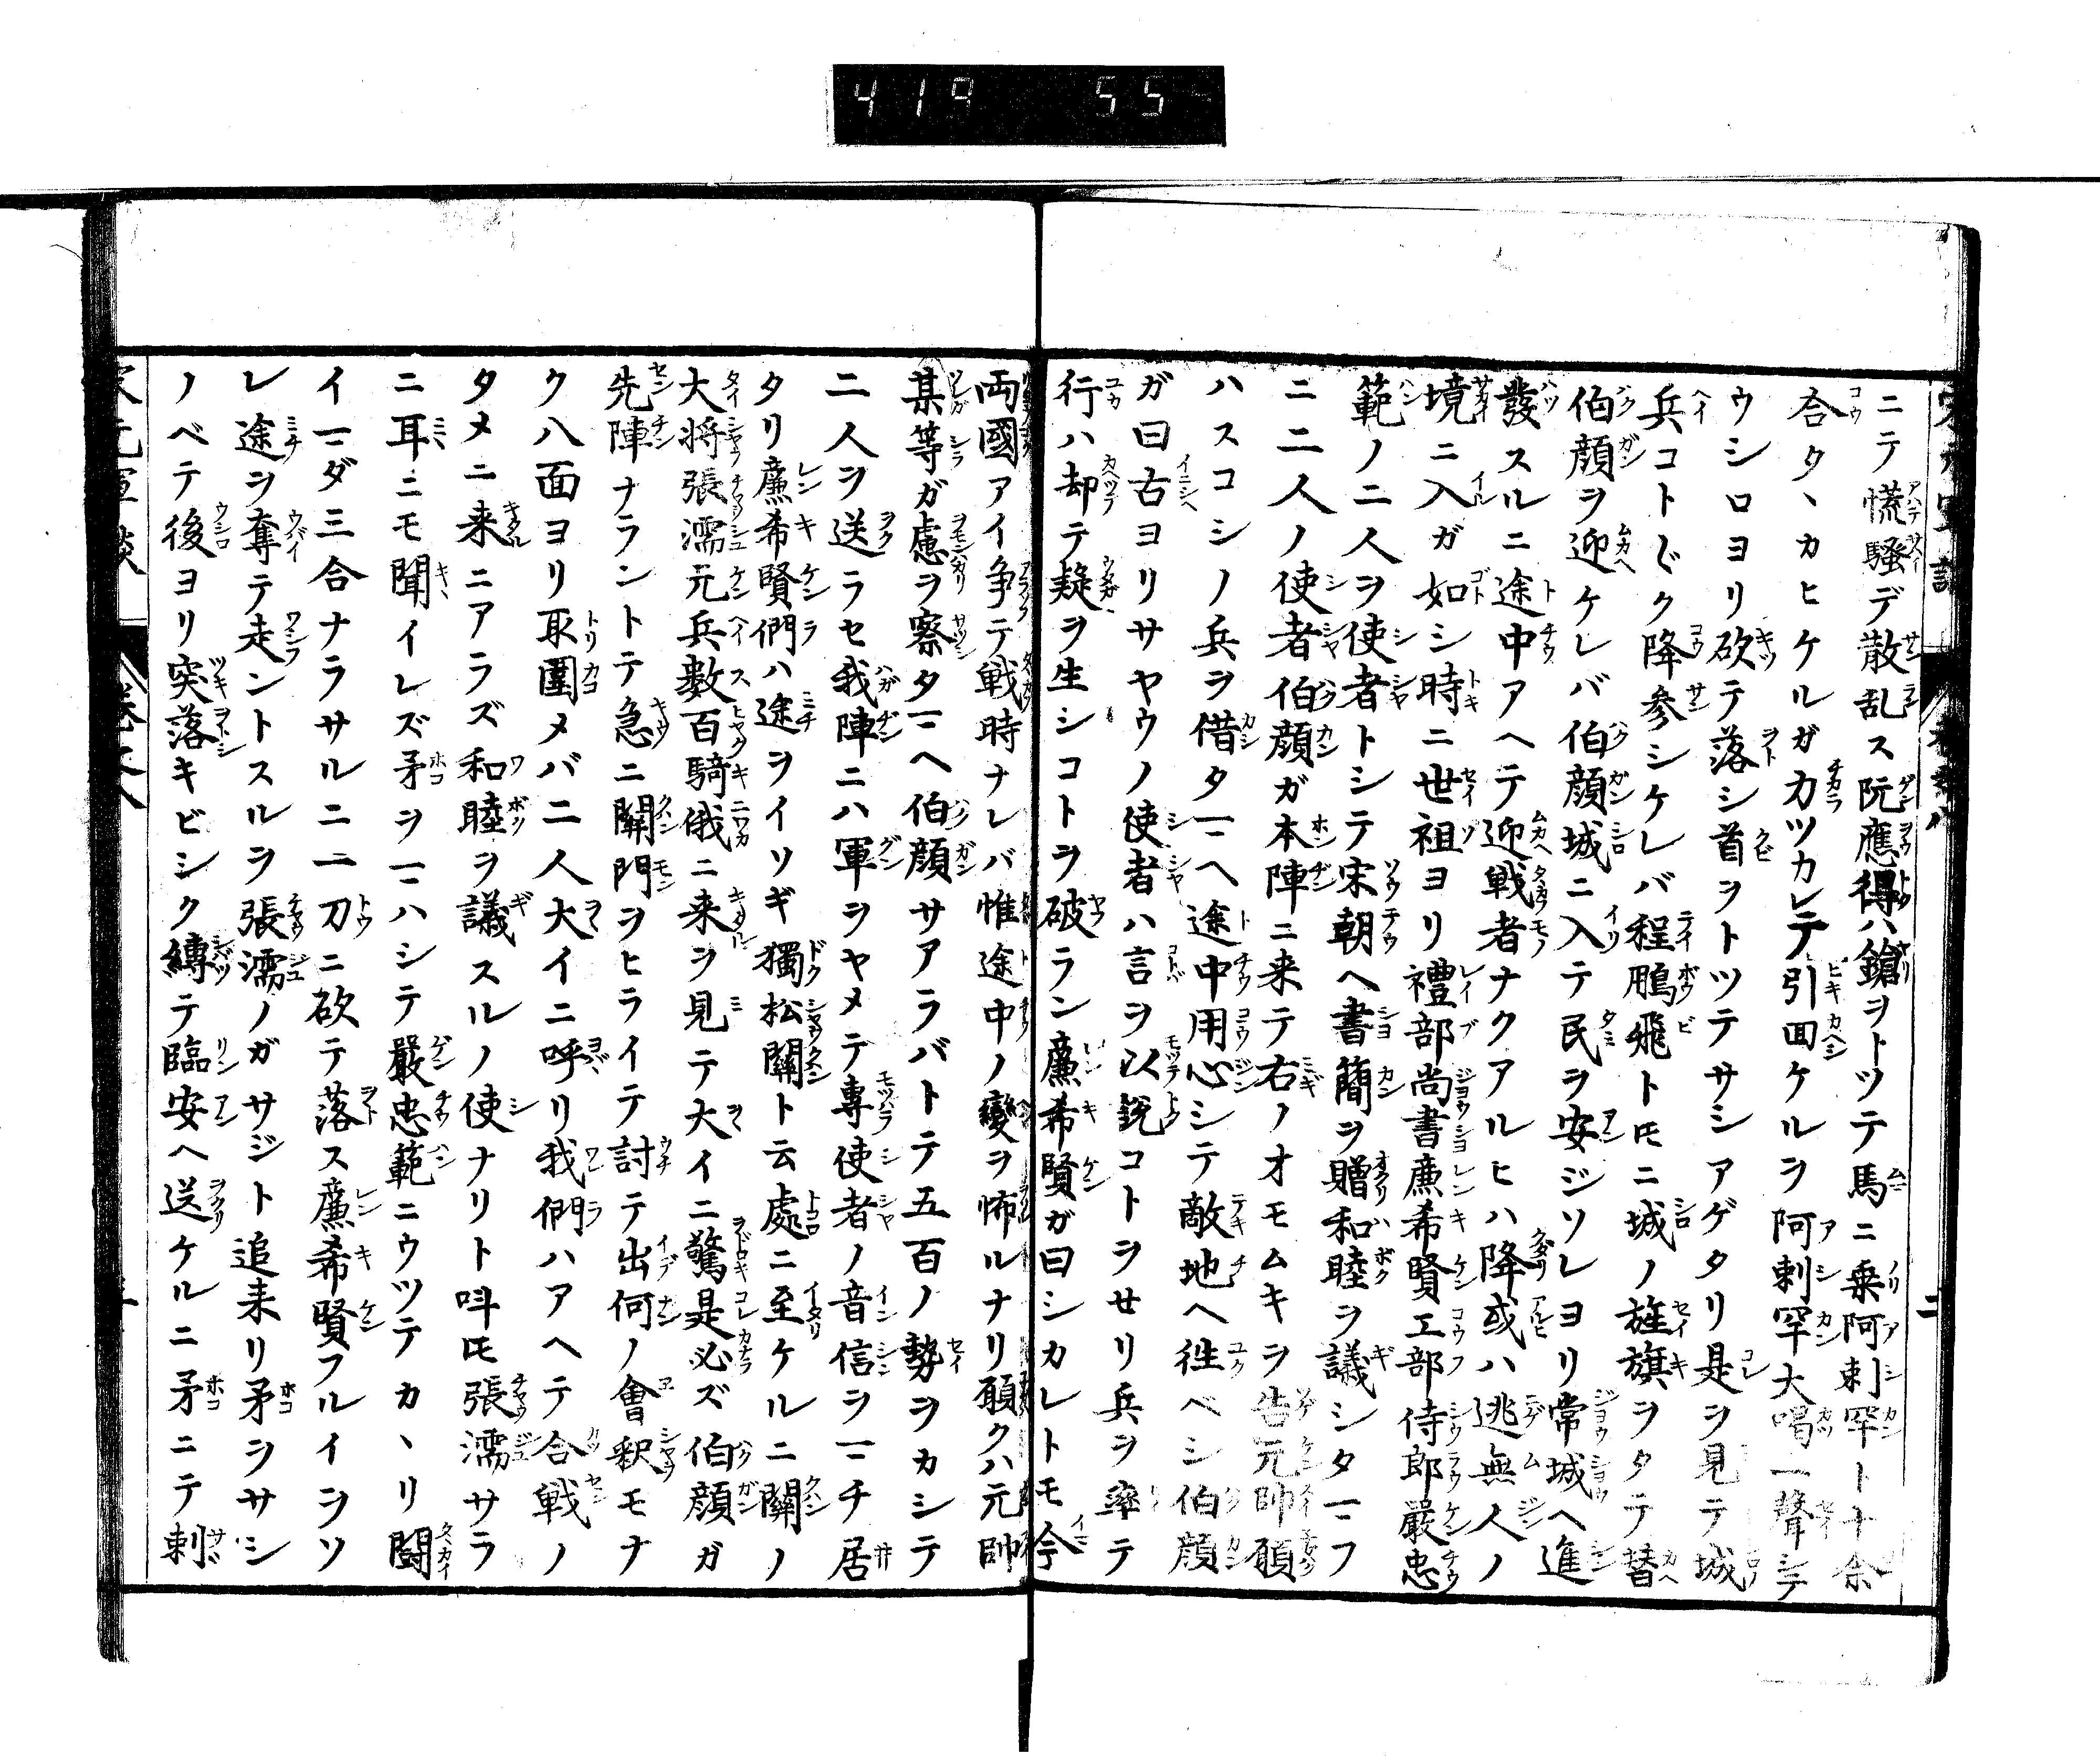 419 55
ニテ慌騒デ散乱ス阮應得ハ鎗ヲトツテ馬ニ乗阿剌罕ト十余
合タヽカヒケルガ力ツカレテ引回ケルヲ阿剌罕大喝一聲シテ
ウシロヨリ砍テ落シ首ヲトツテサシアゲタリ是ヲ見テ城
兵コト〴〵ク降参シケレバ程鵬飛トモニ城ノ旌旗ヲタテ替
伯顔ヲ迎ケレバ伯顔城ニ入テ民ヲ安ジソレヨリ常城ヘ進
發スルニ途中アヘテ迎戦者ナクアルヒハ降或ハ逃無人ノ
境ニ入ガ如シ時ニ世祖ヨリ禮部尚書廉希賢工部侍郎嚴忠
範ノ二人ヲ使者トシテ宋朝ヘ書簡ヲ贈和睦ヲ議シタマフ
ニ二人ノ使者伯顔ガ本陣ニ来テ右ノオモムキヲ告元帥願
ハスコシノ兵ヲ借タマヘ途中用心シテ敵地ヘ徃ベシ伯顔
ガ曰古ヨリサヤウノ使者ハ言ヲ以説コトヲセリ兵ヲ率テ
行ハ却テ疑ヲ生シコトヲ破ラン廉希賢ガ曰シカレトモ今
両國アイ争テ戦時ナレバ惟途中ノ變ヲ怖ルナリ願クハ元帥
某等ガ慮ヲ察タマヘ伯顔サアラバトテ五百ノ勢ヲカシテ
二人ヲ送ラセ我陣ニハ軍ヲヤメテ專使者ノ音信ヲマチ居
タリ廉希賢們ハ途ヲイソギ獨松關ト云處ニ至ケルニ關ノ
大将張濡元兵數百騎俄ニ来ヲ見テ大イニ驚是必ズ伯顔ガ
先陣ナラントテ急ニ關門ヲヒライテ討テ出何ノ會釈モナ
ク八面ヨリ取圍メバ二人大イニ呼リ我們ハアヘテ合戦ノ
タメニ来ニアラズ和睦ヲ議スルノ使ナリト呌トモ張濡サラ
ニ耳ニモ聞イレズ矛ヲマハシテ嚴忠範ニウツテカヽリ闘
イマダ三合ナラサルニ一刀ニ砍テ落ス廉希賢フルイヲソ
レ途ヲ奪テ走ントスルヲ張濡ノガサジト追来リ矛ヲサシ
ノベテ後ヨリ突落キビシク縛テ臨安ヘ送ケルニ矛ニテ刺